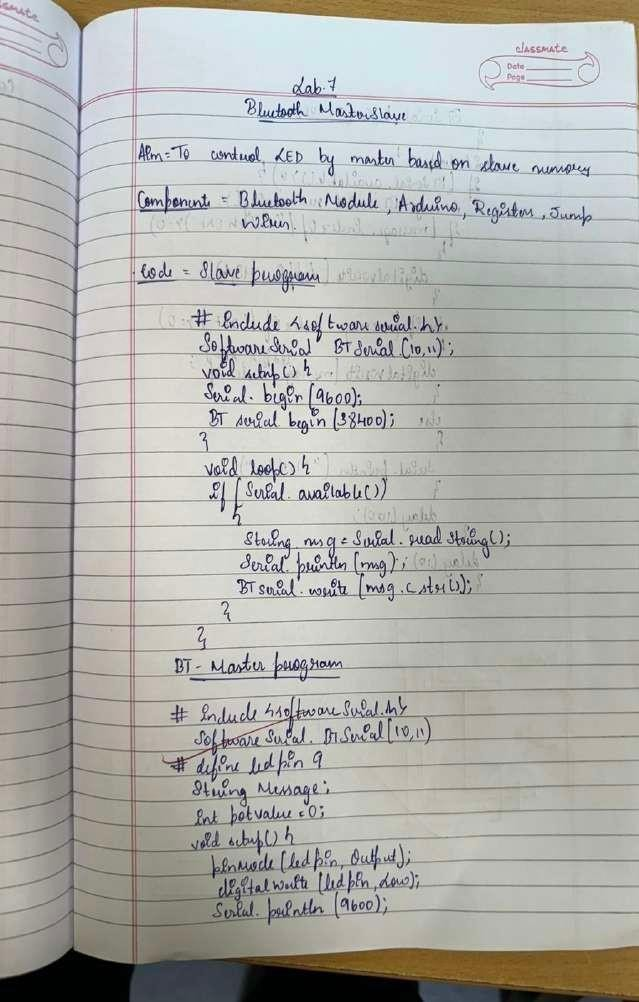 classmate
CLASSMATE
Date
Page
Lab.7
Bluetooth Master Slave
Aim = To control LED by master based on slave memory
Components = Bluetooth Module, Arduino, Registers, Jump
wires.
Code = Slave program
# Include <software serial.h>
Software Serial BT Serial (10,11);
void setup() {
Serial. begin (9600);
BT serial. begin (38400);
}
void loop() {
if (Serial. available())
{
String msg = Serial. read String();
Serial. println (msg);
BT serial. write (msg.c_str());
}
}
BT - Master program
# Include <software Serial.h>
Software Serial. BT Serial (10,11)
# define led pin 9
String Message;
Int potvalue = 0;
void setup() {
pinMode (led pin, Output);
digital write (led pin, Low);
Serial. println (9600);